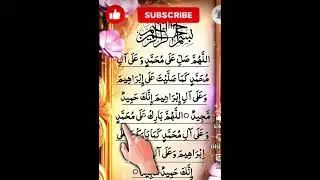 SUBSCRIBE
بسم الله الرحمن الرحيم
اللَّهُمَّ صَلِّ عَلَى مُحَمَّدٍ وَعَلَى آلِ
مُحَمَّدٍ كَمَا صَلَّيْتَ عَلَى إِبْرَاهِيمَ
وَعَلَى آلِ إِبْرَاهِيمَ إِنَّكَ حَمِيدٌ
مَّجِيدٌ اللَّهُمَّ بَارِكْ عَلَى مُحَمَّدٍ
وَعَلَى آلِ مُحَمَّدٍ كَمَا بَارَكْتَ عَلَى
إِبْرَاهِيمَ وَعَلَى آلِ
إِنَّكَ حَمِيدٌ